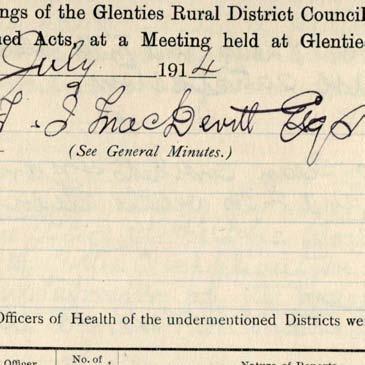 ngs of the Glenties Rural District Council
ned Acts, at a Meeting held at Glenties
July 1914
J. MacDevitt Esq
(See General Minutes.)
Officers of Health of the undermentioned Districts we
Officer No. of Nature of Reports